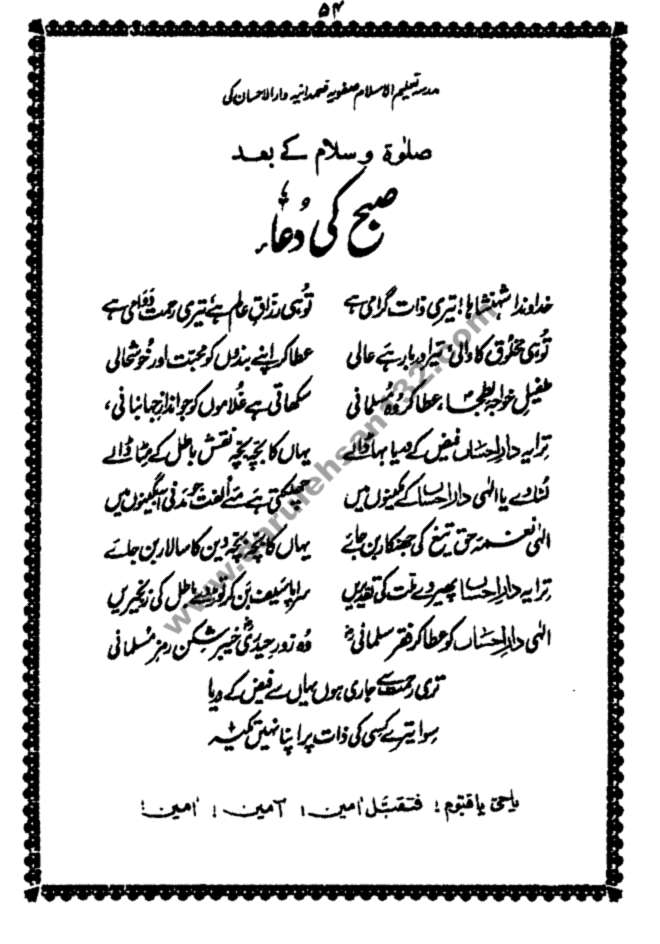 ۵۴
مدرسہ تعلیم الاسلام صفویہ صمدانیہ دارالاحسان کی
صلوٰۃ و سلام کے بعد
صبح کی دُعاء
خداوندا شہنشاہا! تیری ذات گرامی ہے تُو ہی رزاقِ عالم ہے تیری رحمت دَوامی ہے
تُو ہی مخلُوق کا والی تیرا دربار ہے عالی عطا کر اپنے بندوں کو محبّت اور خُوشحالی
طفیلِ خواجہ بطحٰا، عطا کر وُہ مُسلمانی سکھاتی ہے غُلاموں کو جو اندازِ جہانبانی،
ترا یہ دارِاحساں فیض کے دریا بہا ڈالے یہاں کا بچّہ بچّہ نقش باطل کے مٹا ڈالے
لُنڈا دے یا الٰہی دارِاحساں کے مکینوں میں چھلکتی ہے مئے اُلفت جو مَدنی آبگینوں میں
الٰہی نغمۂ حق تیغ کی جھنکار بن جائے یہاں کا بچّہ بچّہ دین کا سالار بن جائے
ترا یہ دارِاحساں پھیر دے ملّت کی تقدیریں سراپا سَیف بن کر توڑ دے باطل کی زنجیریں
الٰہی دارِاحساں کو عطا کر فقرِ سلمانیؓ وُہ زورِ حیدریؓ خیبر شِکن رمزِ مُسلمانی
تری رحمت سے جاری ہوں یہاں سے فیض کے دریا
سِوا تیرے کِسی کی ذات پر اپنا نہیں تکیہ
یا حیُّ یا قیّوم! فتقبّل اٰمین! آمین! اٰمین!
www.darulehsan132.com